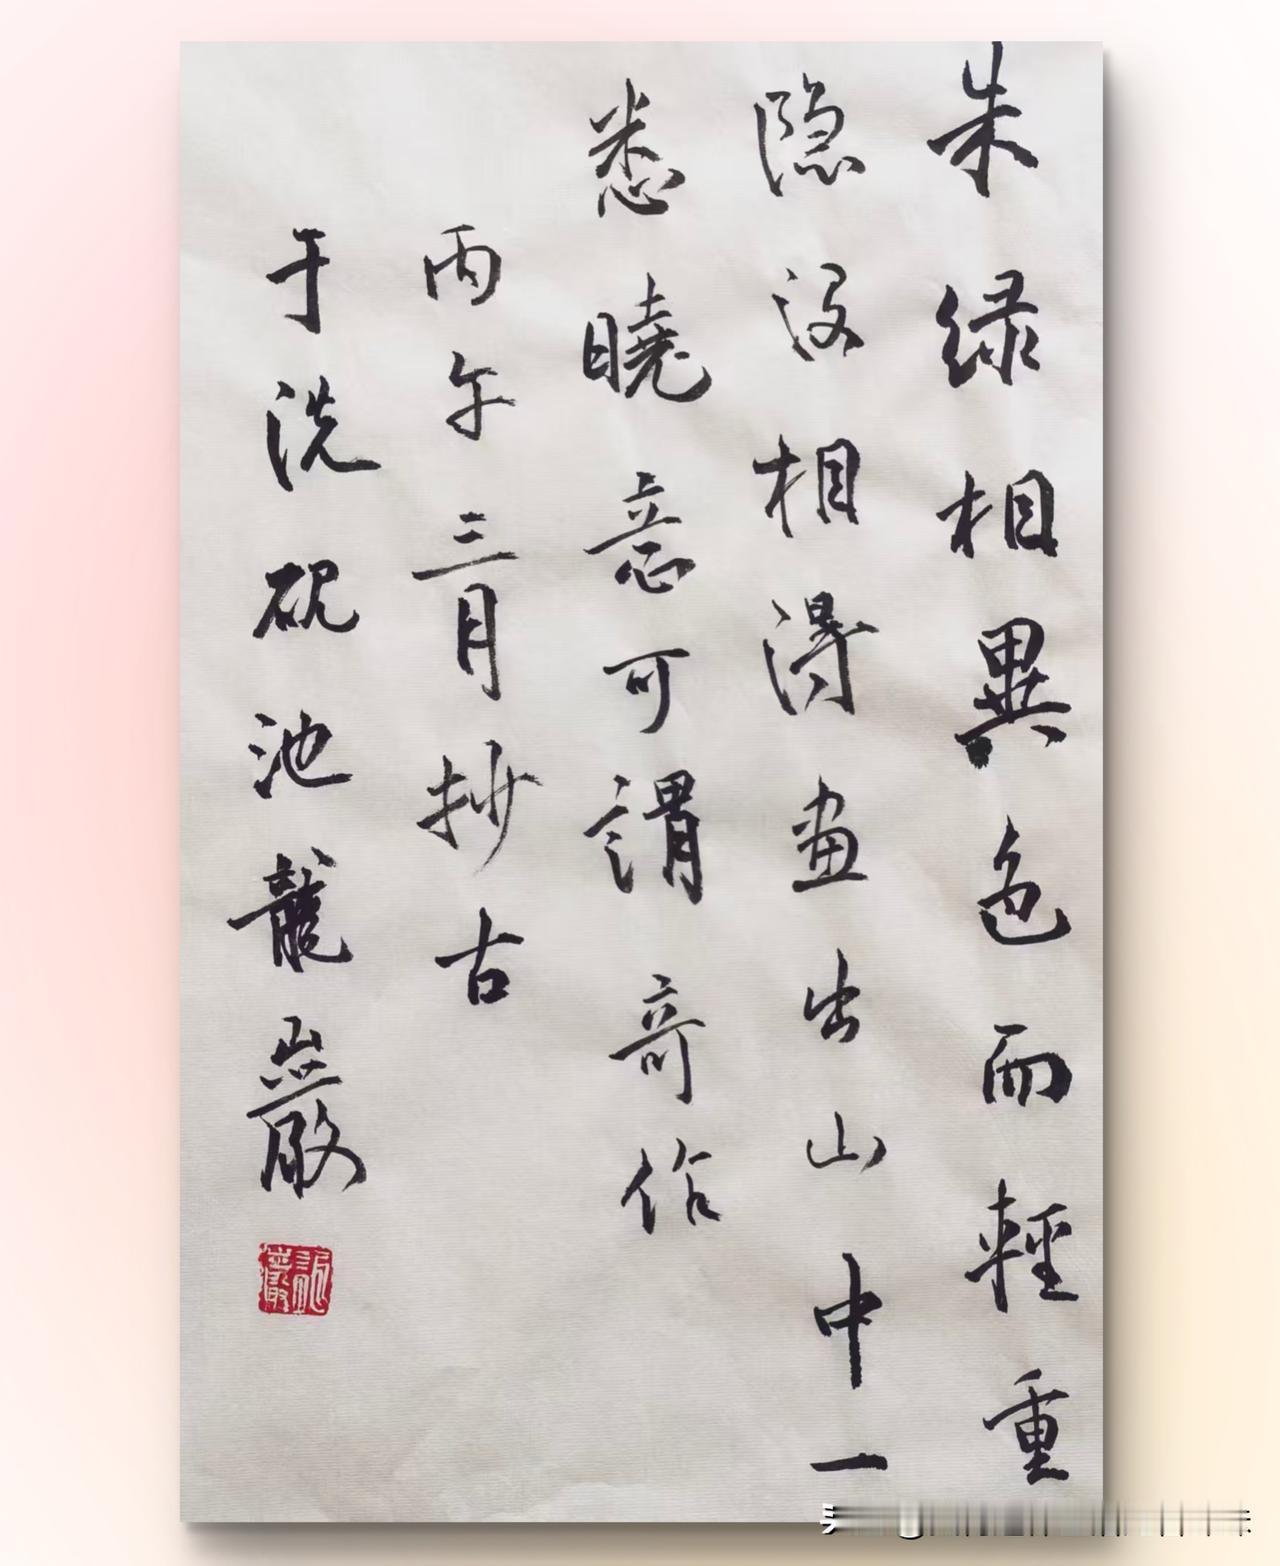 朱绿相異色而輕重
隐没相得画出山中一
悉曉意可謂奇作
丙午三月抄古
于洗砚池龍巖